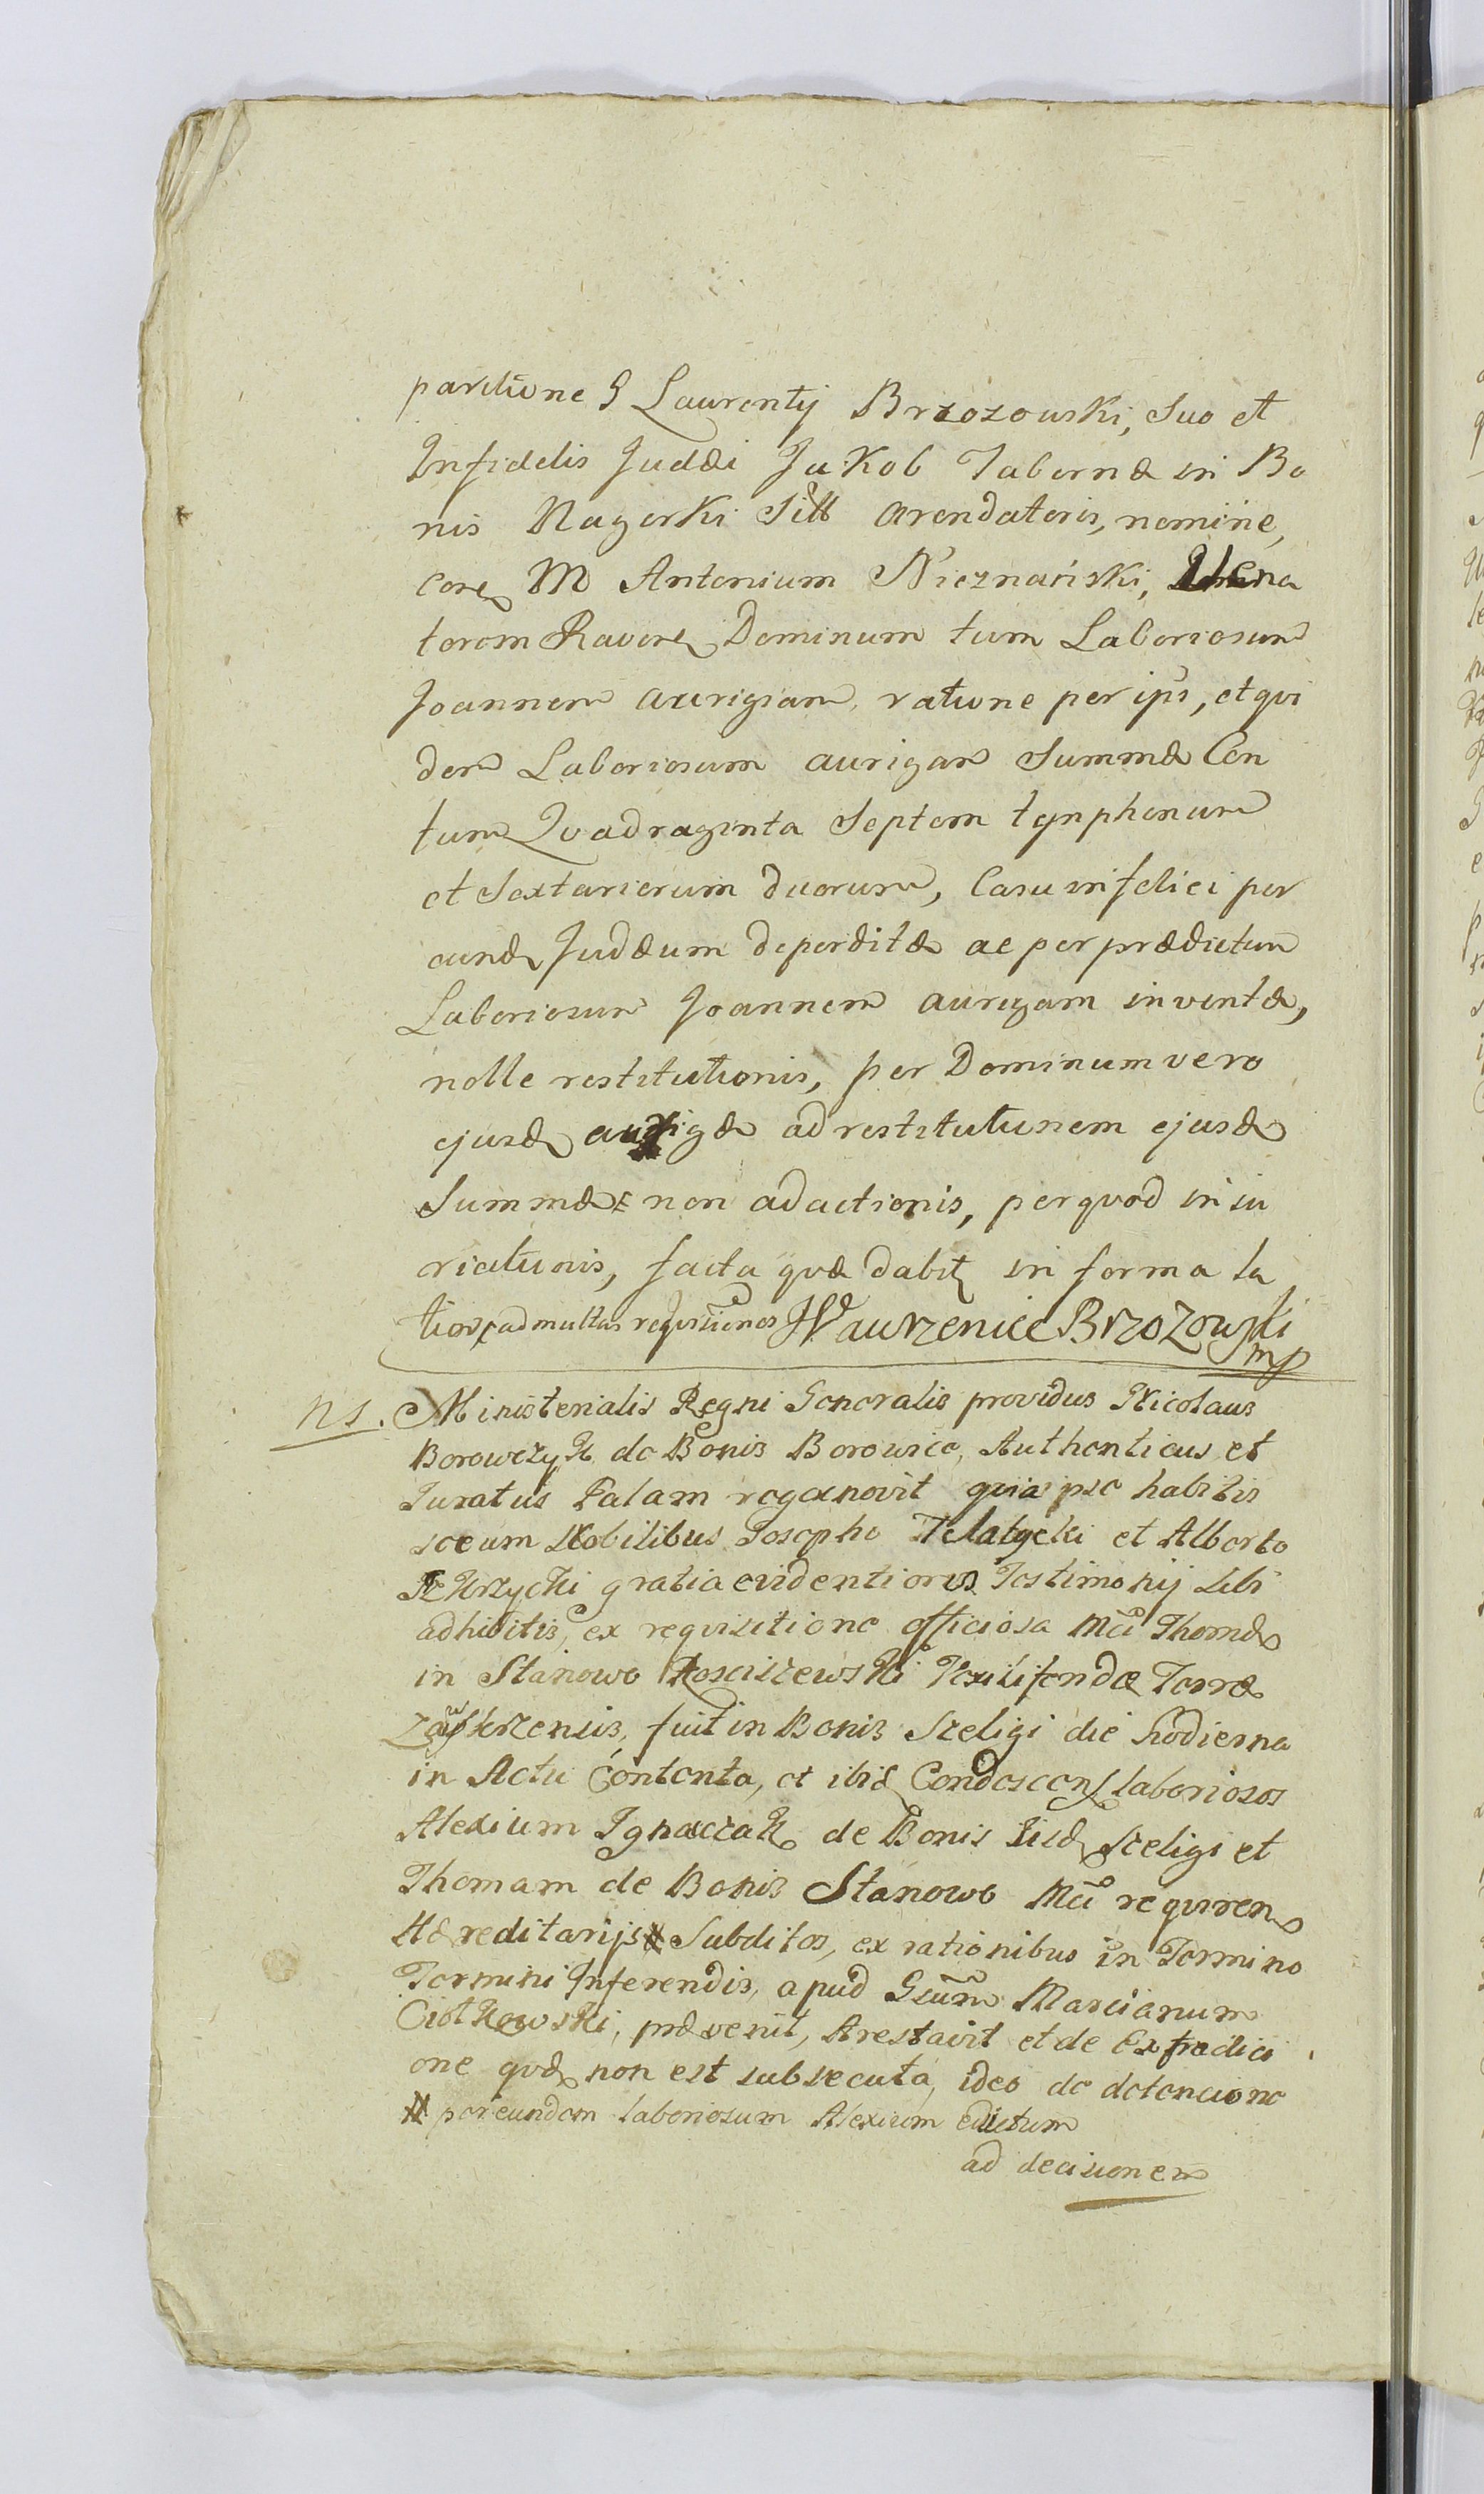 partitione G Laurentij Brzozowski, suo et
Infidelis Judæi Jakob Tabernæ in Bo
nis Nagorki Sitt Arendatoris, nomine,
corꝫ M Antonium Nieznański, Vena
torem Ravorꝫ Dominum tum Laboriosum
Joannem aurigam, ratione per ipsū, et qui
dem Laboriosum aurigam Summæ Cen
tum Quadraginta Septem tynphonum
et Sextariorum duorum, Casu infelici per
eundꝫ Judæum deperditæ ac per prædictum
Laboriosum Joannem aurigam inventæ,
nolle restitutionis, per Dominum vero
ejusdꝫ aurigæ ad restitutionem ejusdꝫ
Summæ non adactionis, per quod inju
riationis, facta quæ dabitꝫ in forma la
tiori ad multas requisitiones Wawrzeniec Brzozowski
mp
ns. Ministerialis Regni Generalis providus Nicolaus
Borowczyk de Bonis Borowice, Authenticus et
Juratus Palam recognovit quia ipse habitis
secum Nobilibus Josepho Telatycki et Alberto
Krzycki gratia evidentioris Testimonij sibi
adhibitis, ex requisitione officiosa Mci Thomæ
in Stanowo Rosciszewski Vexilliferidæ Terræ
Zawskrzensis, fuit in Bonis Szeligi die hodierna
in Actu Contenta, et ibidꝫ Condescens laboriosos
Alexium Ignaczak de Bonis iisdꝫ Szeligi et
Thomam de Bonis Stanowo Mci requirens
Hæreditarijs # Subditos, ex rationibus in Termino
Termini Inferendis, apud Gsum Marcianum
Ciotkowski, prævenit, Arestavit et de Extradici
one quæ non est subsecuta, ideo de detencione
# per eundem laboriosum Alexium eductum
ad decisionem